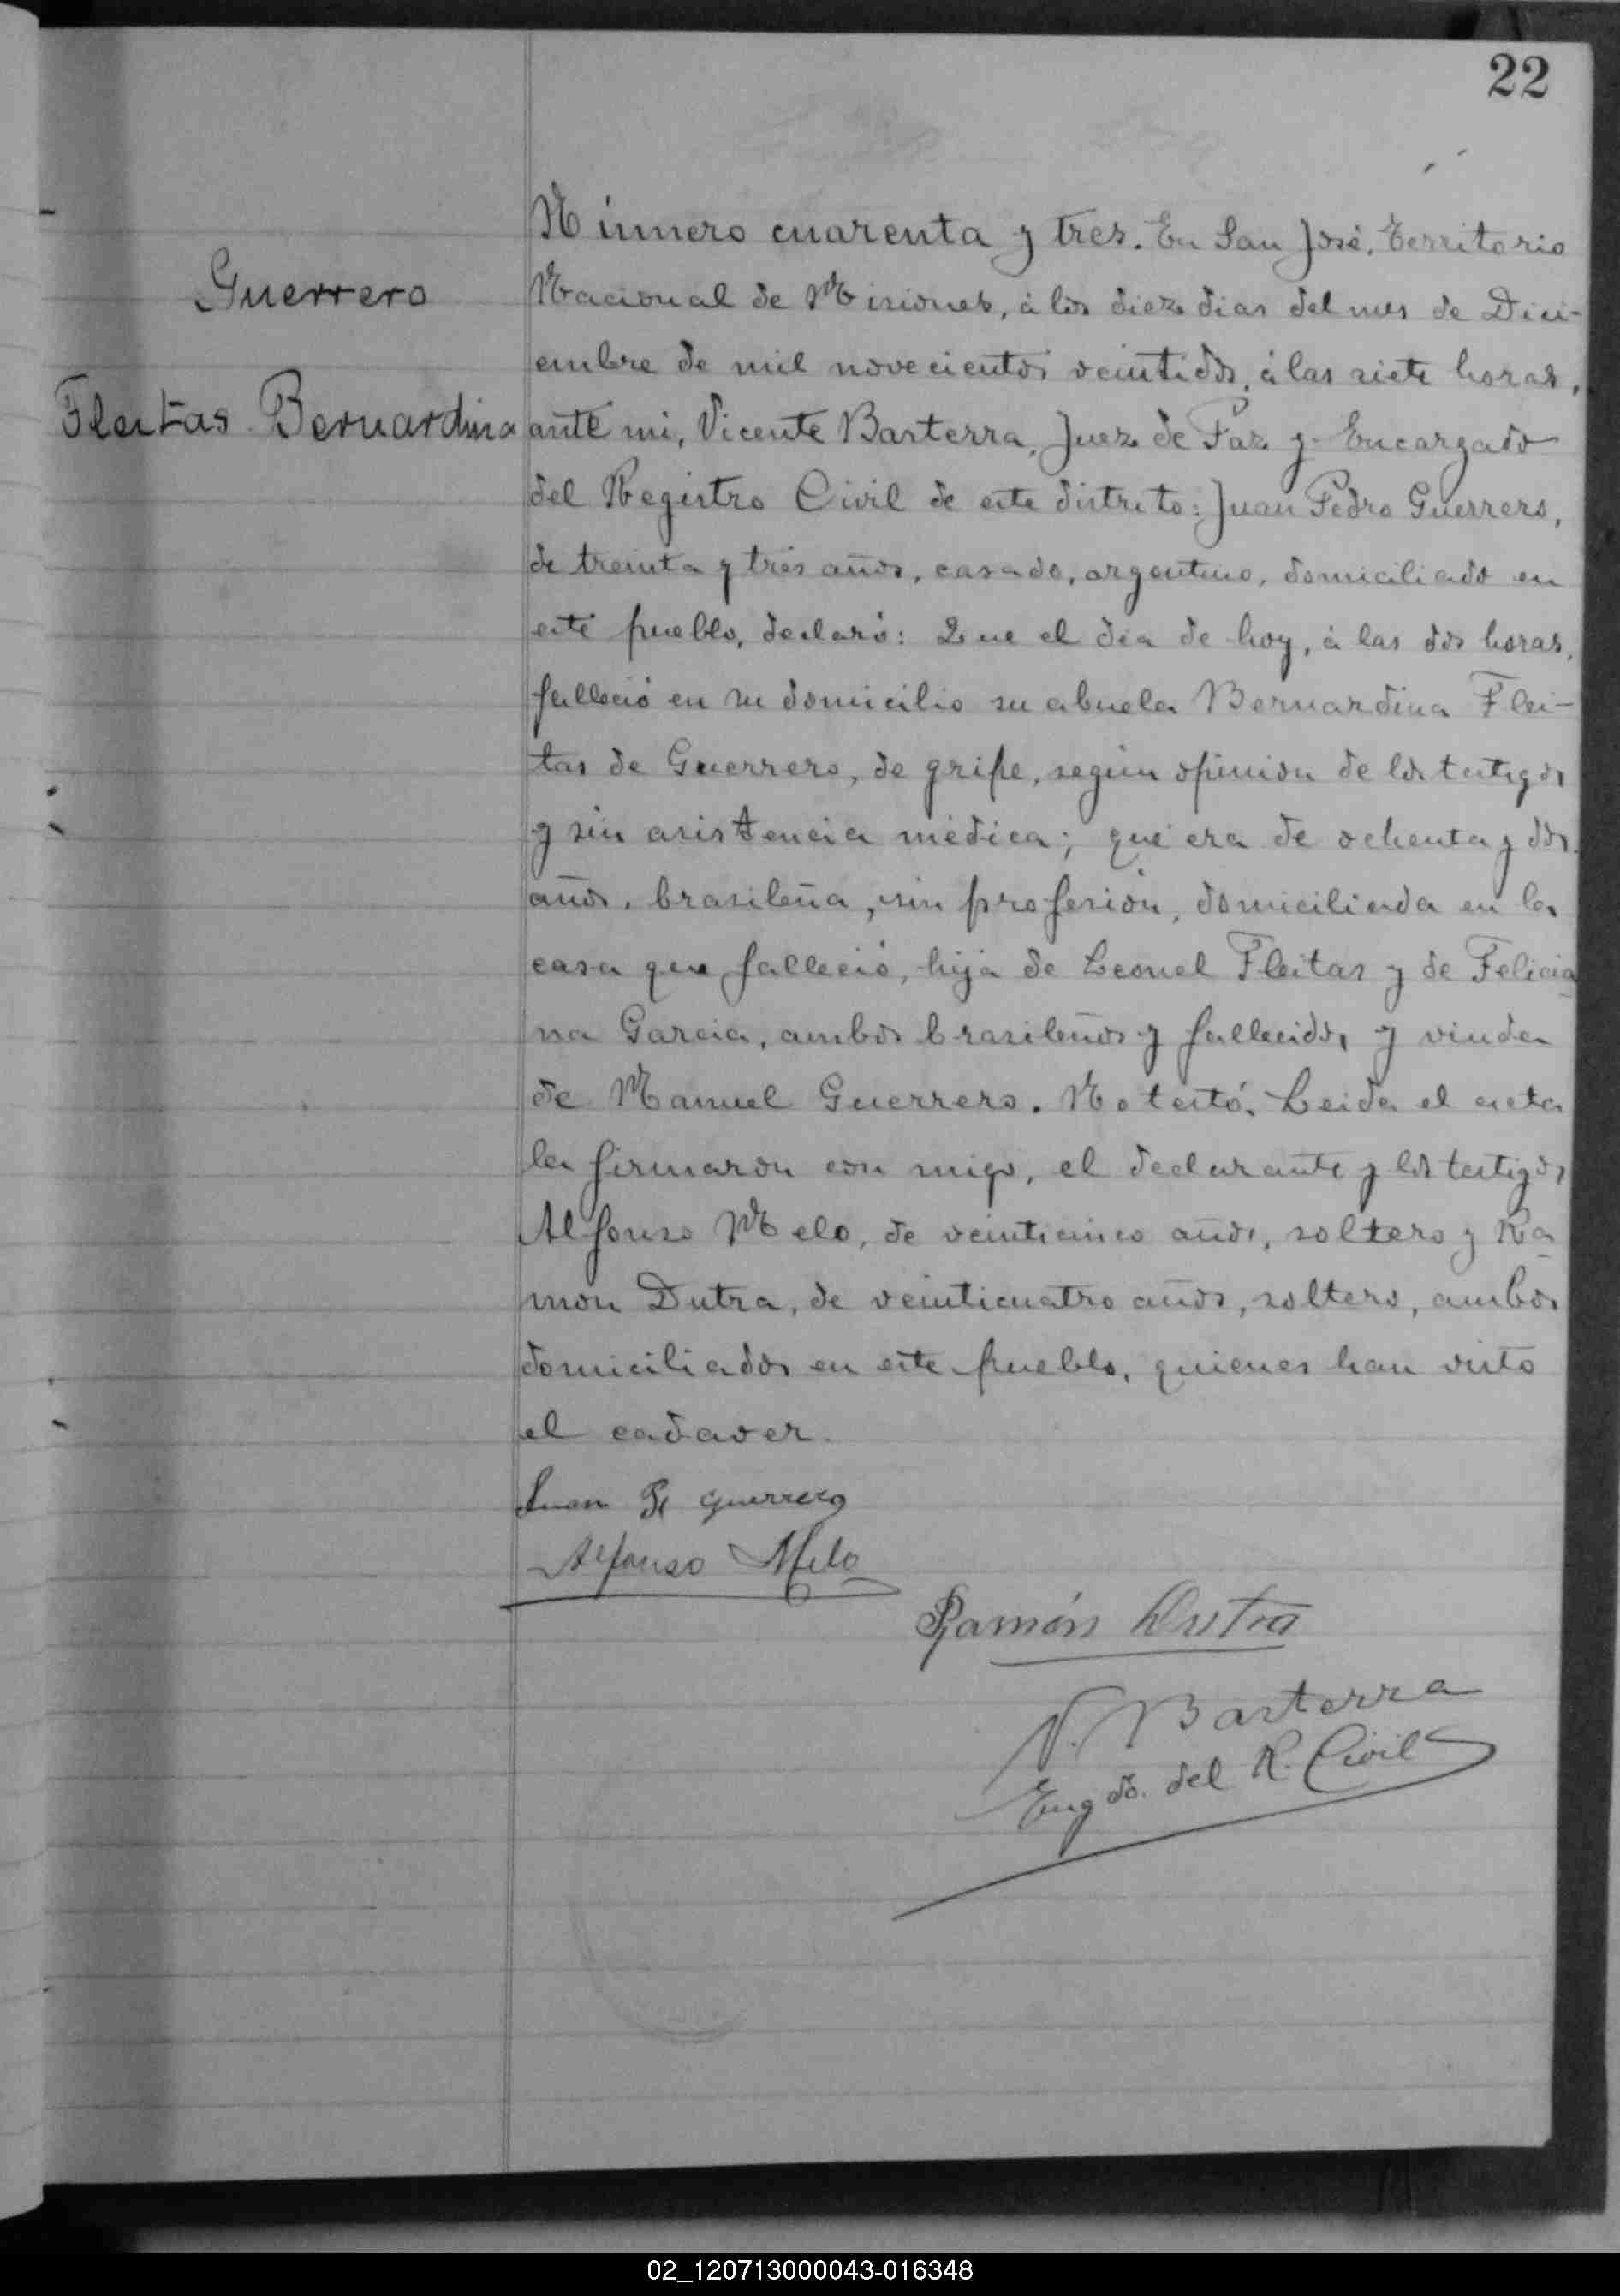 22
Guerrero
Fleitas Bernardina
Número cuarenta y tres. En San José, Territorio
Nacional de Misiones, á los diez dias del mes de Dici-
embre de mil novecientos veintidos, á las siete horas,
ante mi, Vicente Basterra, Juez de Paz y Encargado
del Registro Civil de este distrito: Juan Pedro Guerrero,
de treinta y tres años, casado, argentino, domiciliado en
este pueblo, declaró: Que el dia de hoy, á las dos horas,
falleció en su domicilio su abuela Bernardina Flei-
tas de Guerrero, de gripe, según opinion de los testigos
y sin asistencia médica; que era de ochenta y dos
años, brasileña, sin profesión, domiciliada en la
casa que falleció, hija de Leonel Fleitas y de Felicia
na Garcia, ambos brasileños y fallecidos, y viuda
de Manuel Guerrero. No testó. Leida el acta
la firmaron con migo, el declarante y los testigos
Alfonso Melo, de veinticinco años, soltero y Ra
mon Dutra, de veinticuatro años, soltero, ambos
domiciliados en este pueblo, quienes han visto
el cadaver.
Juan P. Guerrero
Alfonso Melo
Ramón Dutra
V. Basterra
Engdo. del R. Civil
02_120713000043-016348